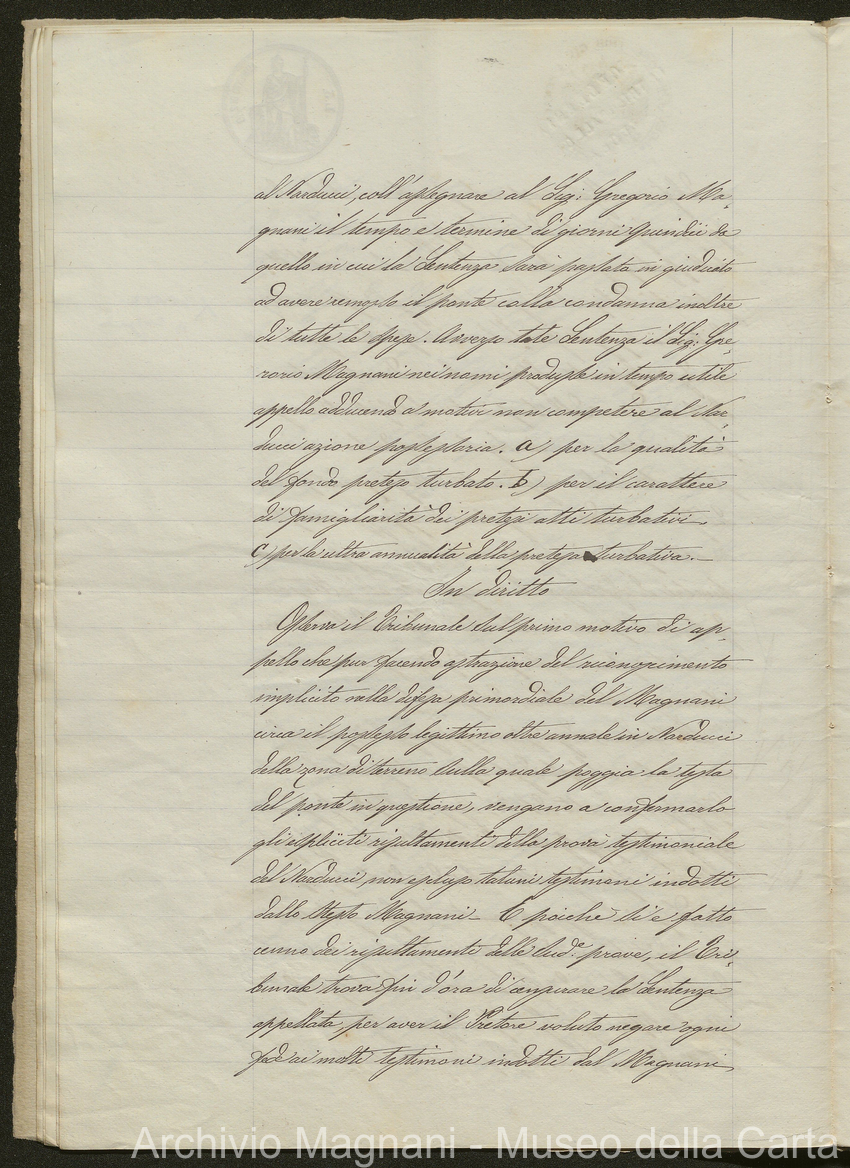 al Narducci, coll'assegnare al Sig: Gregorio Ma-
gnani il tempo e termine di giorni quindici da
quello in cui la Sentenza sarà passata in giudicato
ad avere remosso il ponte colla condanna inoltre
di tutte le spese. Avverso tale Sentenza il Sig: Gre-
gorio Magnani nei nomi produsse in tempo utile
appello adducendo a motivi non competere al Nar-
ducci azione possessoria. a) per la qualità
del fondo preteso turbato. b) per il carattere
di famigliarità dei pretesi atti turbativi
c) per la ultra annualità della pretesa turbativa.—
In diritto
Osserva il Tribunale sul primo motivo di ap-
pello che pur facendo astrazione del riconoscimento
implicito nella difesa primordiale del Magnani
circa il possesso legittimo oltre annale in Narducci
della zona di terreno sulla quale poggia la testa
del ponte in questione, vengano a confermarlo
gli espliciti risultamenti della prova testimoniale
del Narducci, non escluso taluni testimoni indotti
dallo stesso Magnani— E poichè si è fatto
cenno dei risultamenti delle sud.e prove, il Tri-
bunale trova fin d'ora di censurare la Sentenza
appellata, per aver il Pretore voluto negare ogni
fede ai molti testimoni indotti dal Magnani
Archivio Magnani - Museo della Carta